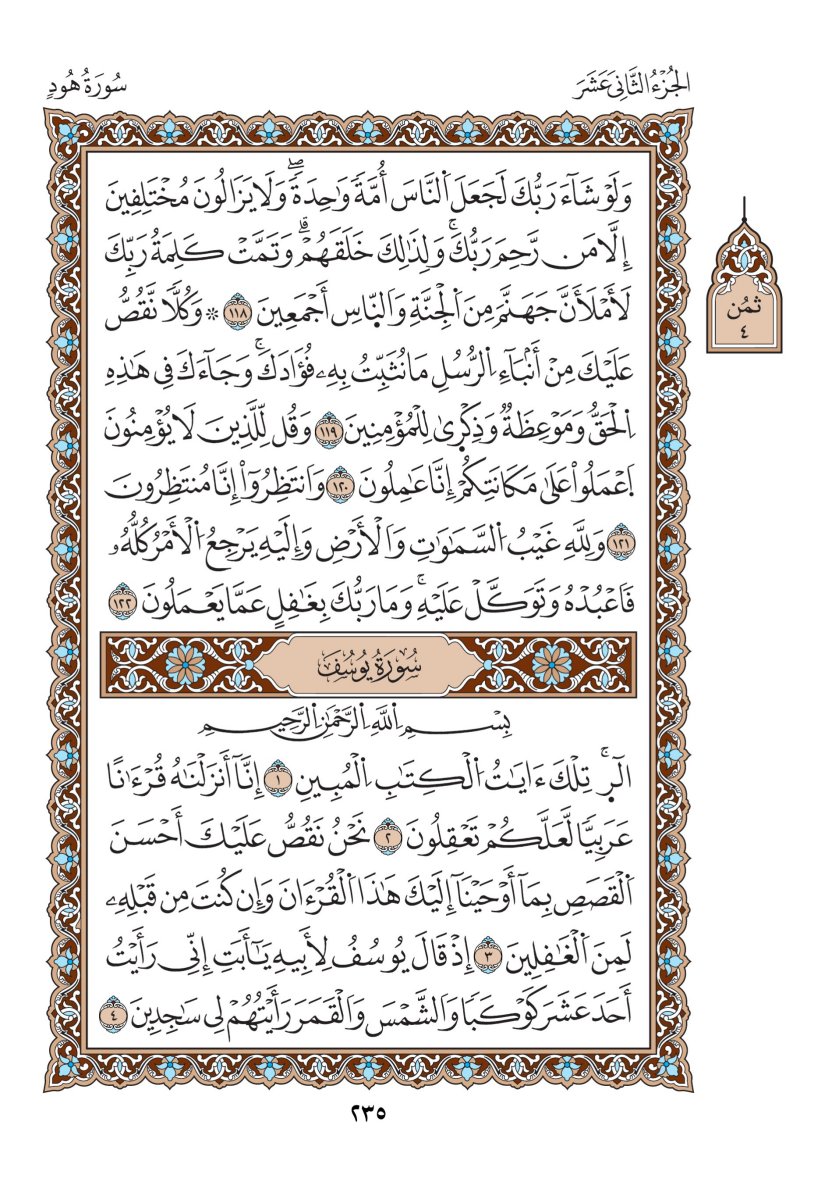 الجُزْءُ الثَّانِي عَشَرَ
سُورَةُ هُودٍ
وَلَوْ شَآءَ رَبُّكَ لَجَعَلَ اَ۬لنَّاسَ أُمَّةٗ وَٰحِدَةٗۖ وَلَا يَزَالُونَ مُخْتَلِفِينَ
إِلَّا مَن رَّحِمَ رَبُّكَۚ وَلِذَٰلِكَ خَلَقَهُمْۗ وَتَمَّتْ كَلِمَةُ رَبِّكَ
لَأَمْلَأَنَّ جَهَنَّمَ مِنَ اَ۬لْجِنَّةِ وَالنّ۪اسِ أَجْمَعِينَ ١١٨ ۞ وَكُلّٗا نَّقُصُّ
عَلَيْكَ مِنْ أَنۢبَآءِ اِ۬لرُّسُلِ مَا نُثَبِّتُ بِهِۦ فُؤَادَكَۚ وَجَآءَكَ فِي هَٰذِهِ
اِ۬لْحَقُّ وَمَوْعِظَةٞ وَذِكْر۪ىٰ لِلْمُؤْمِنِينَ ١١٩ وَقُل لِّلَّذِينَ لَا يُؤْمِنُونَ
اَ۪عْمَلُواْ عَلَىٰ مَكَانَتِكُمْ إِنَّا عَٰمِلُونَ ١٢٠ وَانتَظِرُوٓاْ إِنَّا مُنتَظِرُونَ
١٢١ وَلِلَّهِ غَيْبُ اُ۬لسَّمَٰوَٰتِ وَالْأَرْضِ وَإِلَيْهِ يَرْجِعُ اُ۬لْأَمْرُ كُلُّهُۥ
فَاعْبُدْهُ وَتَوَكَّلْ عَلَيْهِۚ وَمَا رَبُّكَ بِغَٰفِلٍ عَمَّا يَعْمَلُونَ ١٢٢
ثُمُن
٤
سُورَةُ يُوسُفَ
بِسْمِ اِ۬للَّهِ اِ۬لرَّحْمَٰنِ اِ۬لرَّحِيمِ
الٓر۪ۚ تِلْكَ ءَايَٰتُ اُ۬لْكِتَٰبِ اِ۬لْمُبِينِ ١ إِنَّآ أَنزَلْنَٰهُ قُرْءَٰنًا
عَرَبِيّٗا لَّعَلَّكُمْ تَعْقِلُونَ ٢ نَحْنُ نَقُصُّ عَلَيْكَ أَحْسَنَ
اَ۬لْقَصَصِ بِمَآ أَوْحَيْنَآ إِلَيْكَ هَٰذَا اَ۬لْقُرْءَانَ وَإِن كُنتَ مِن قَبْلِهِۦ
لَمِنَ اَ۬لْغَٰفِلِينَ ٣ إِذْ قَالَ يُوسُفُ لِأَبِيهِ يَٰٓأَبَتِ إِنِّي رَأَيْتُ
أَحَدَ عَشَرَ كَوْكَبٗا وَالشَّمْسَ وَالْقَمَرَ رَأَيْتُهُمْ لِي سَٰجِدِينَ ٤
٢٣٥